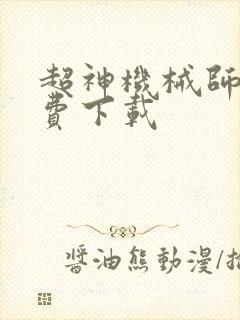 超神機械師
費下載
醬油熊動漫/